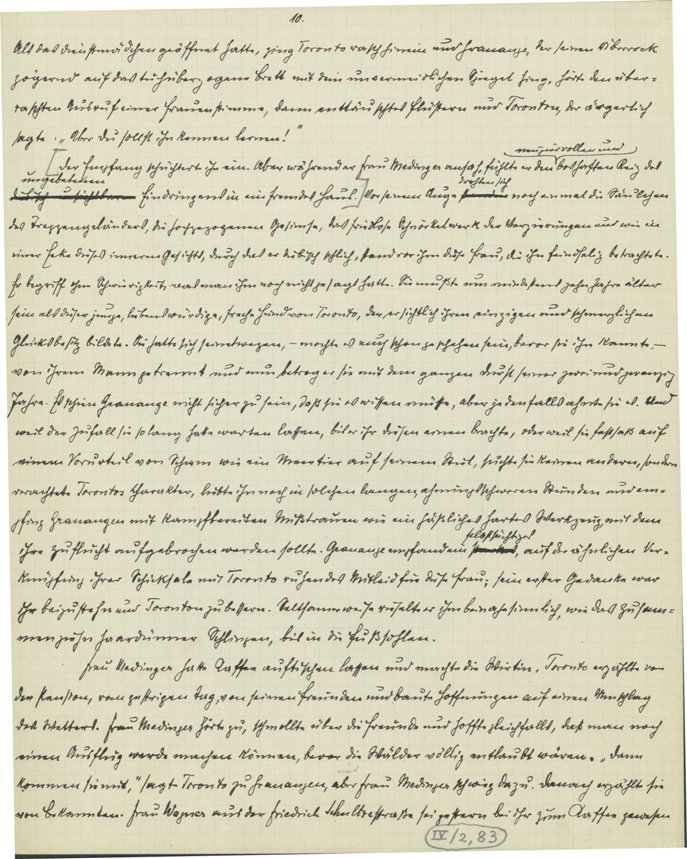 10.
Als das Dienstmädchen geöffnet hatte, ging Toronto rasch hinein und Grananze, der seinen Überrock
zögernd auf das tuchüberzogene Brett mit dem unvermeidlichen Spiegel hing, hörte den über-
raschten Ausruf einer Frauenstimme, dann enttäuschtes Flüstern und Toronton, der ärgerlich
sagte: „Aber du sollst ihn kennen lernen!"
neugiervollen und
[Der Empfang schüchtert ihn ein. Aber während er Frau Medinger ansah, fühlte er den boshaften Reiz des
ungebetenen
Eindringens in ein fremdes Haus.] Vor seinem Auge
drehten sich
noch einmal die Säulchen
des Treppengeländers, die hochgezogenen Gesimse, das fruchtlose Schnörkelwerk der Verzierungen und wie in
einer Ecke dieses inneren Gesichts, durch das er diebisch schlich, stand vor ihm diese Frau, die ihn feindselig betrachtete.
Er begriff ohne Schwierigkeit, was man ihm noch nicht gesagt hatte. Sie mußte um mindestens zehn Jahre älter
sein als dieser junge, liebenswürdige, freche Hund von Toronto, der ersichtlich ihren einzigen und schmerzlichen
Glücksbesitz bildete. Sie hatte sich seinetwegen, – mochte es auch schon geschehen sein, bevor sie ihn kannte, –
von ihrem Mann getrennt und nun betrog er sie mit dem ganzen Durst seiner zweiundzwanzig
Jahre. Es schien Grananze nicht sicher zu sein, daß sie es wissen müsse, aber jedenfalls ahnte sie es. Und
weil der Zufall sie so lang hatte warten lassen, bis er ihr diesen einen brachte, oder weil sie festsaß auf
einem Vorurteil von Scham wie ein Meertier auf seinem Stiel, suchte sie keinen andern, sondern
verachtete Torontos Charakter, liebte ihn noch in solchen langen, ahnungsschweren Stunden und em-
pfing Granangen mit kampfbereiten Mißtrauen wie ein häßliches hartes Werkzeug, mit dem
ihre Zuflucht aufgebrochen werden sollte. Grananze empfand ein
selbstsüchtiges
, auf der ähnlichen Ver-
knüpfung ihrer Schicksale mit Toronto ruhendes Mitleid für diese Frau; sein erster Gedanke war
ihr beizustehn und Toronton zu bessern. Seltsamerweise rieselte er ihm beinahe sinnlich, wie das Zusam-
menziehn haardünner Schlingen, bis in die Fußsohlen.
Frau Medinger hatte Kaffee auftischen lassen und machte die Wirtin. Toronto erzählte von
der Pension, vom gestrigen Tag, von seinen Freunden und baute Hoffnungen auf einen Umschlag
des Wetters. Frau Medinger hörte zu, schmollte über die Freunde und hoffte gleichfalls, daß man noch
einen Ausflug werde machen können, bevor die Wälder völlig entlaubt wären. „Dann
kommen sie mit," sagte Toronto zu Granangen, aber Frau Medinger schwieg dazu. Danach erzählte sie
von Bekannten. Frau Wagner aus der Friedrich Schulzestraße sei gestern bei ihr zum Kaffee gewesen
IV/2, 83